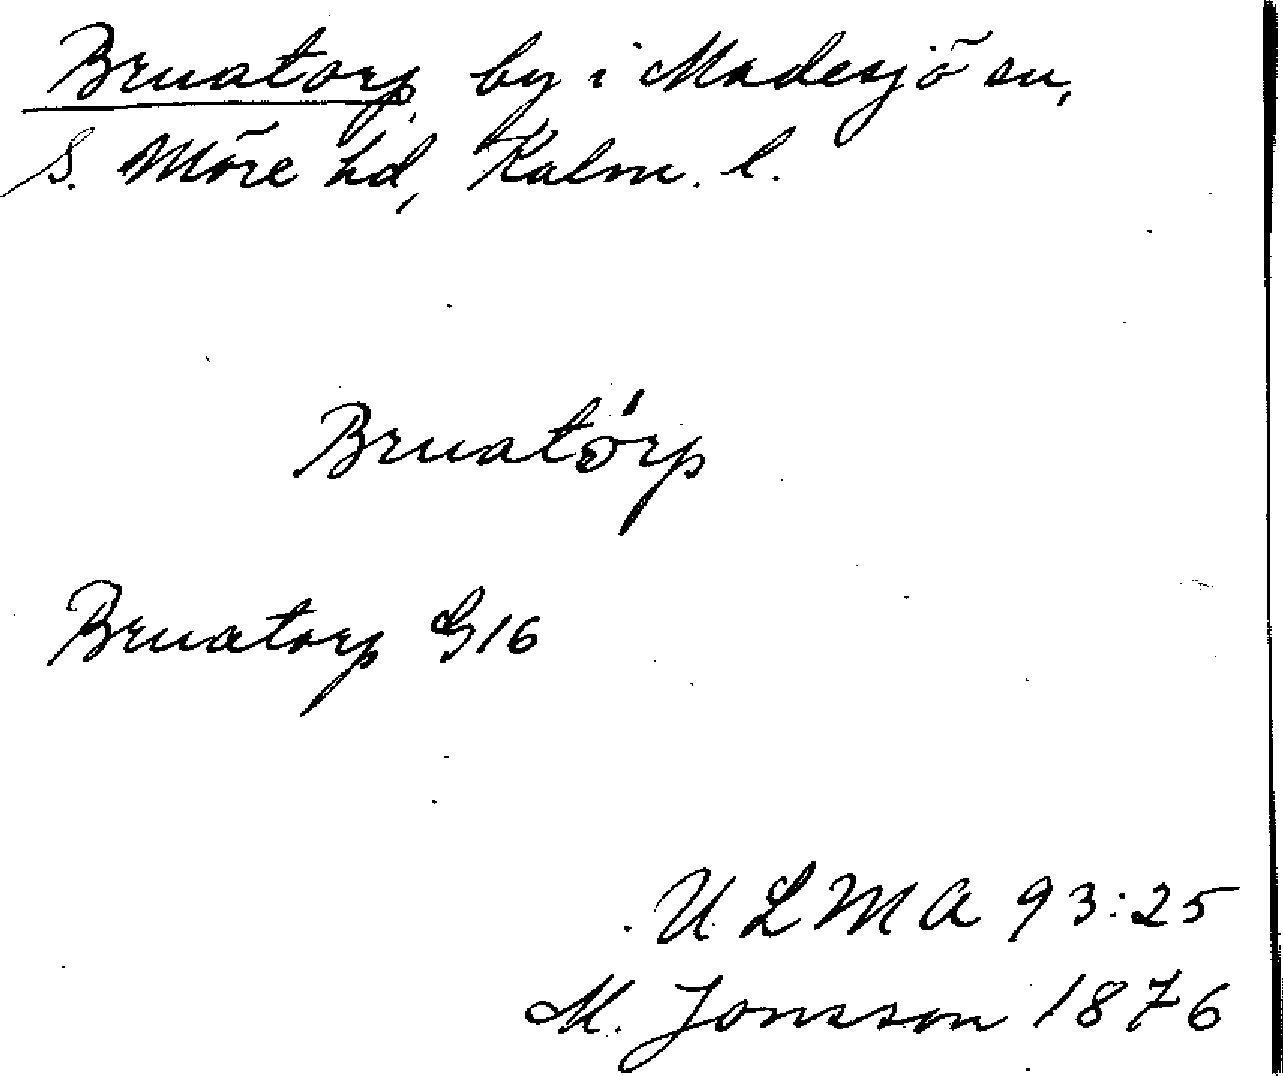 Bruatorp, by i Madesjö sn,
S. Möre hd, Kalm. l.
Bruatórp
Bruatorp G16
U L M A 93:25
M. Jonsson 1876